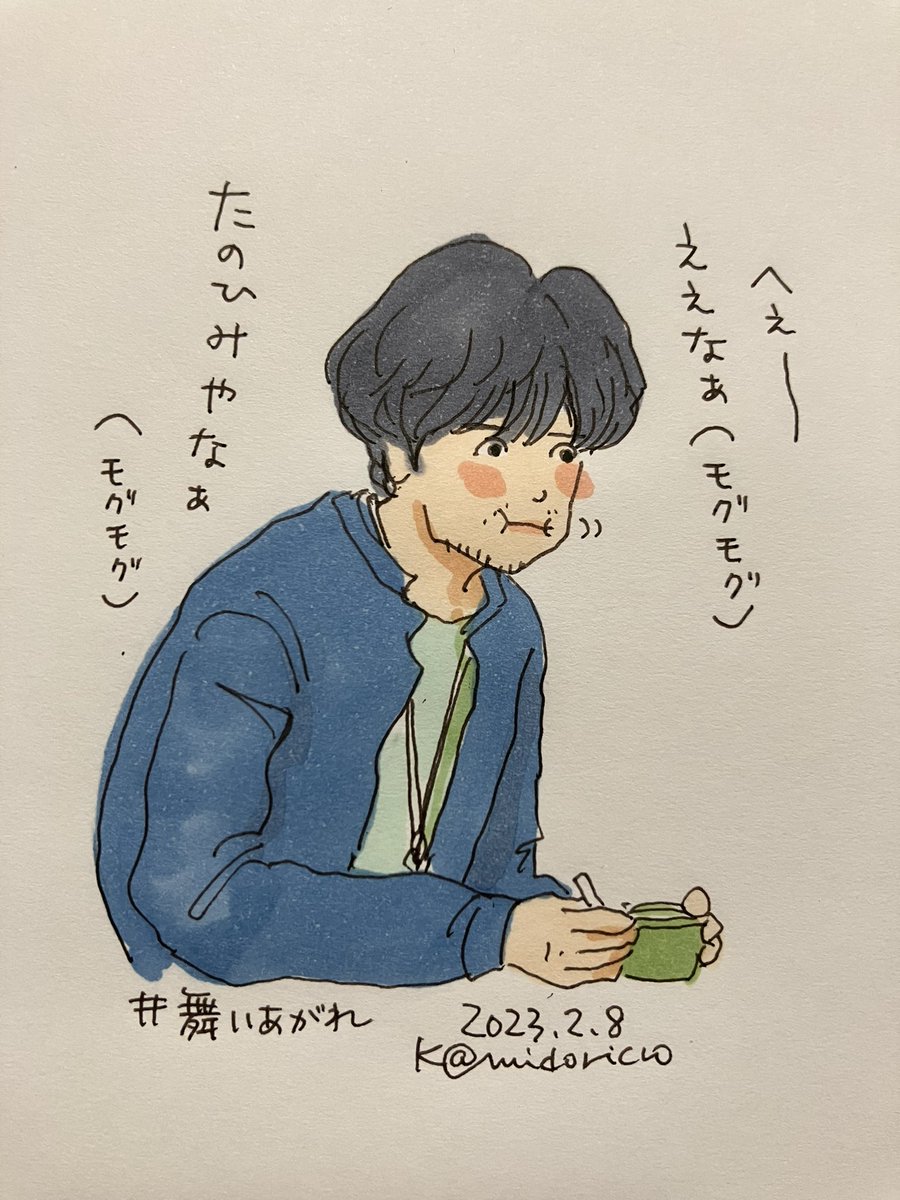 へぇー
ええなぁ(モグモグ)
たのひみやなぁ
(モグモグ)
#舞いあがれ
2023.2.8
K@midoricco